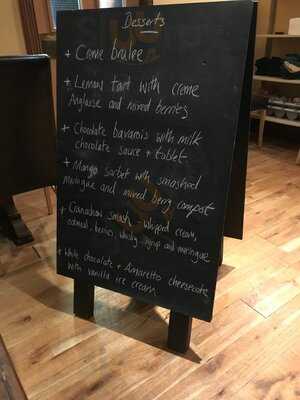 Desserts
+ Creme brulee
+ Lemon tart with creme
Anglaise and mixed berries
+ Chocolate bavarois with milk
chocolate sauce + tablet
+ Mango sorbet with smashed
meringue and mixed berry compost
+ Cranachan smash, whipped cream,
oatmeal, berries, whisky syrup and meringue
+ White chocolate + Amaretto cheesecake
with vanilla ice cream